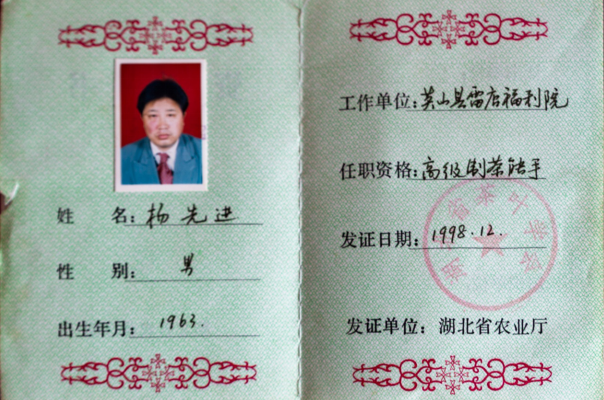 姓 名: 杨先进
性 别: 男
出生年月: 1963.
工作单位: 英山县雷店福利院
任职资格: 高级制茶能手
发证日期: 1998.12.
发证单位: 湖北省农业厅
湖北省茶叶学会